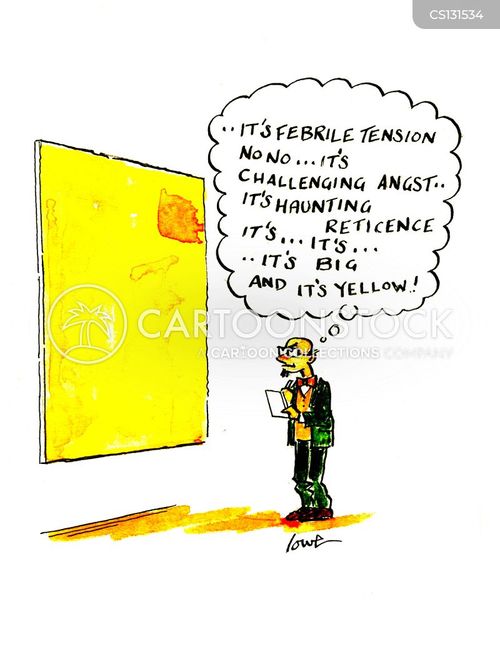 CS131534
..IT'S FEBRILE TENSION
NO NO...IT'S
CHALLENGING ANGST..
IT'S HAUNTING
RETICENCE
IT'S...IT'S...
..IT'S BIG
AND IT'S YELLOW!
CARTOONSTOCK
A CARTOON COLLECTIONS COMPANY
Lowe